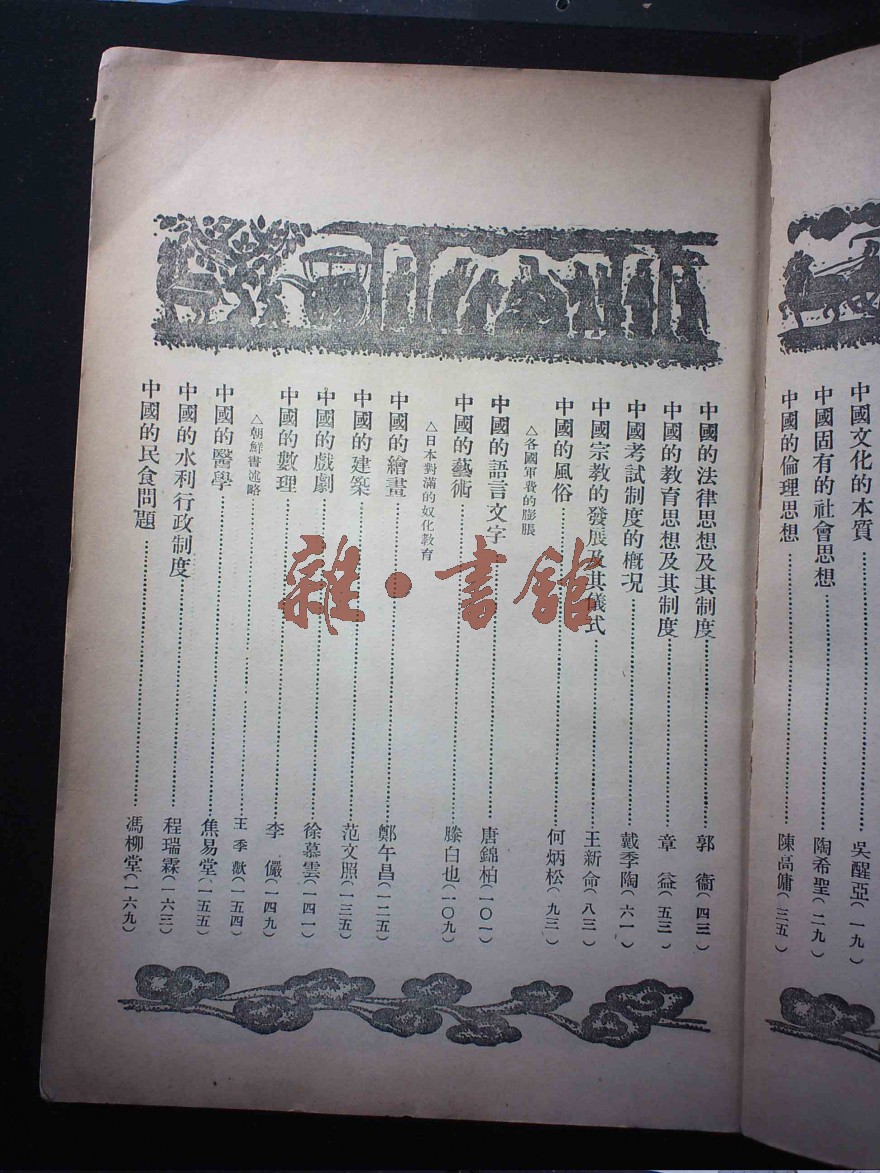 中國文化的本質……吳醒亞(一九)
中國固有的社會思想……陶希聖(二九)
中國的倫理思想……陳高傭(三五)
中國的法律思想及其制度……郭　衞(四三)
中國的教育思想及其制度……章　益(五三)
中國考試制度的概况……戴季陶(六一)
中國宗教的發展及其儀式……王新命(八三)
中國的風俗……何炳松(九三)
△各國軍費的膨脹
中國的語言文字……唐錦柏(一〇一)
中國的藝術……滕白也(一〇九)
△日本對滿的奴化教育
中國的繪畫……鄭午昌(一二五)
中國的建築……范文照(一三五)
中國的戲劇……徐慕雲(一四一)
中國的數理……李　儼(一四九)
△朝鮮書述略……王季歗(一五四)
中國的醫學……焦易堂(一五五)
中國的水利行政制度……程瑞霖(一六三)
中國的民食問題……馮柳堂(一六九)
雜·書館